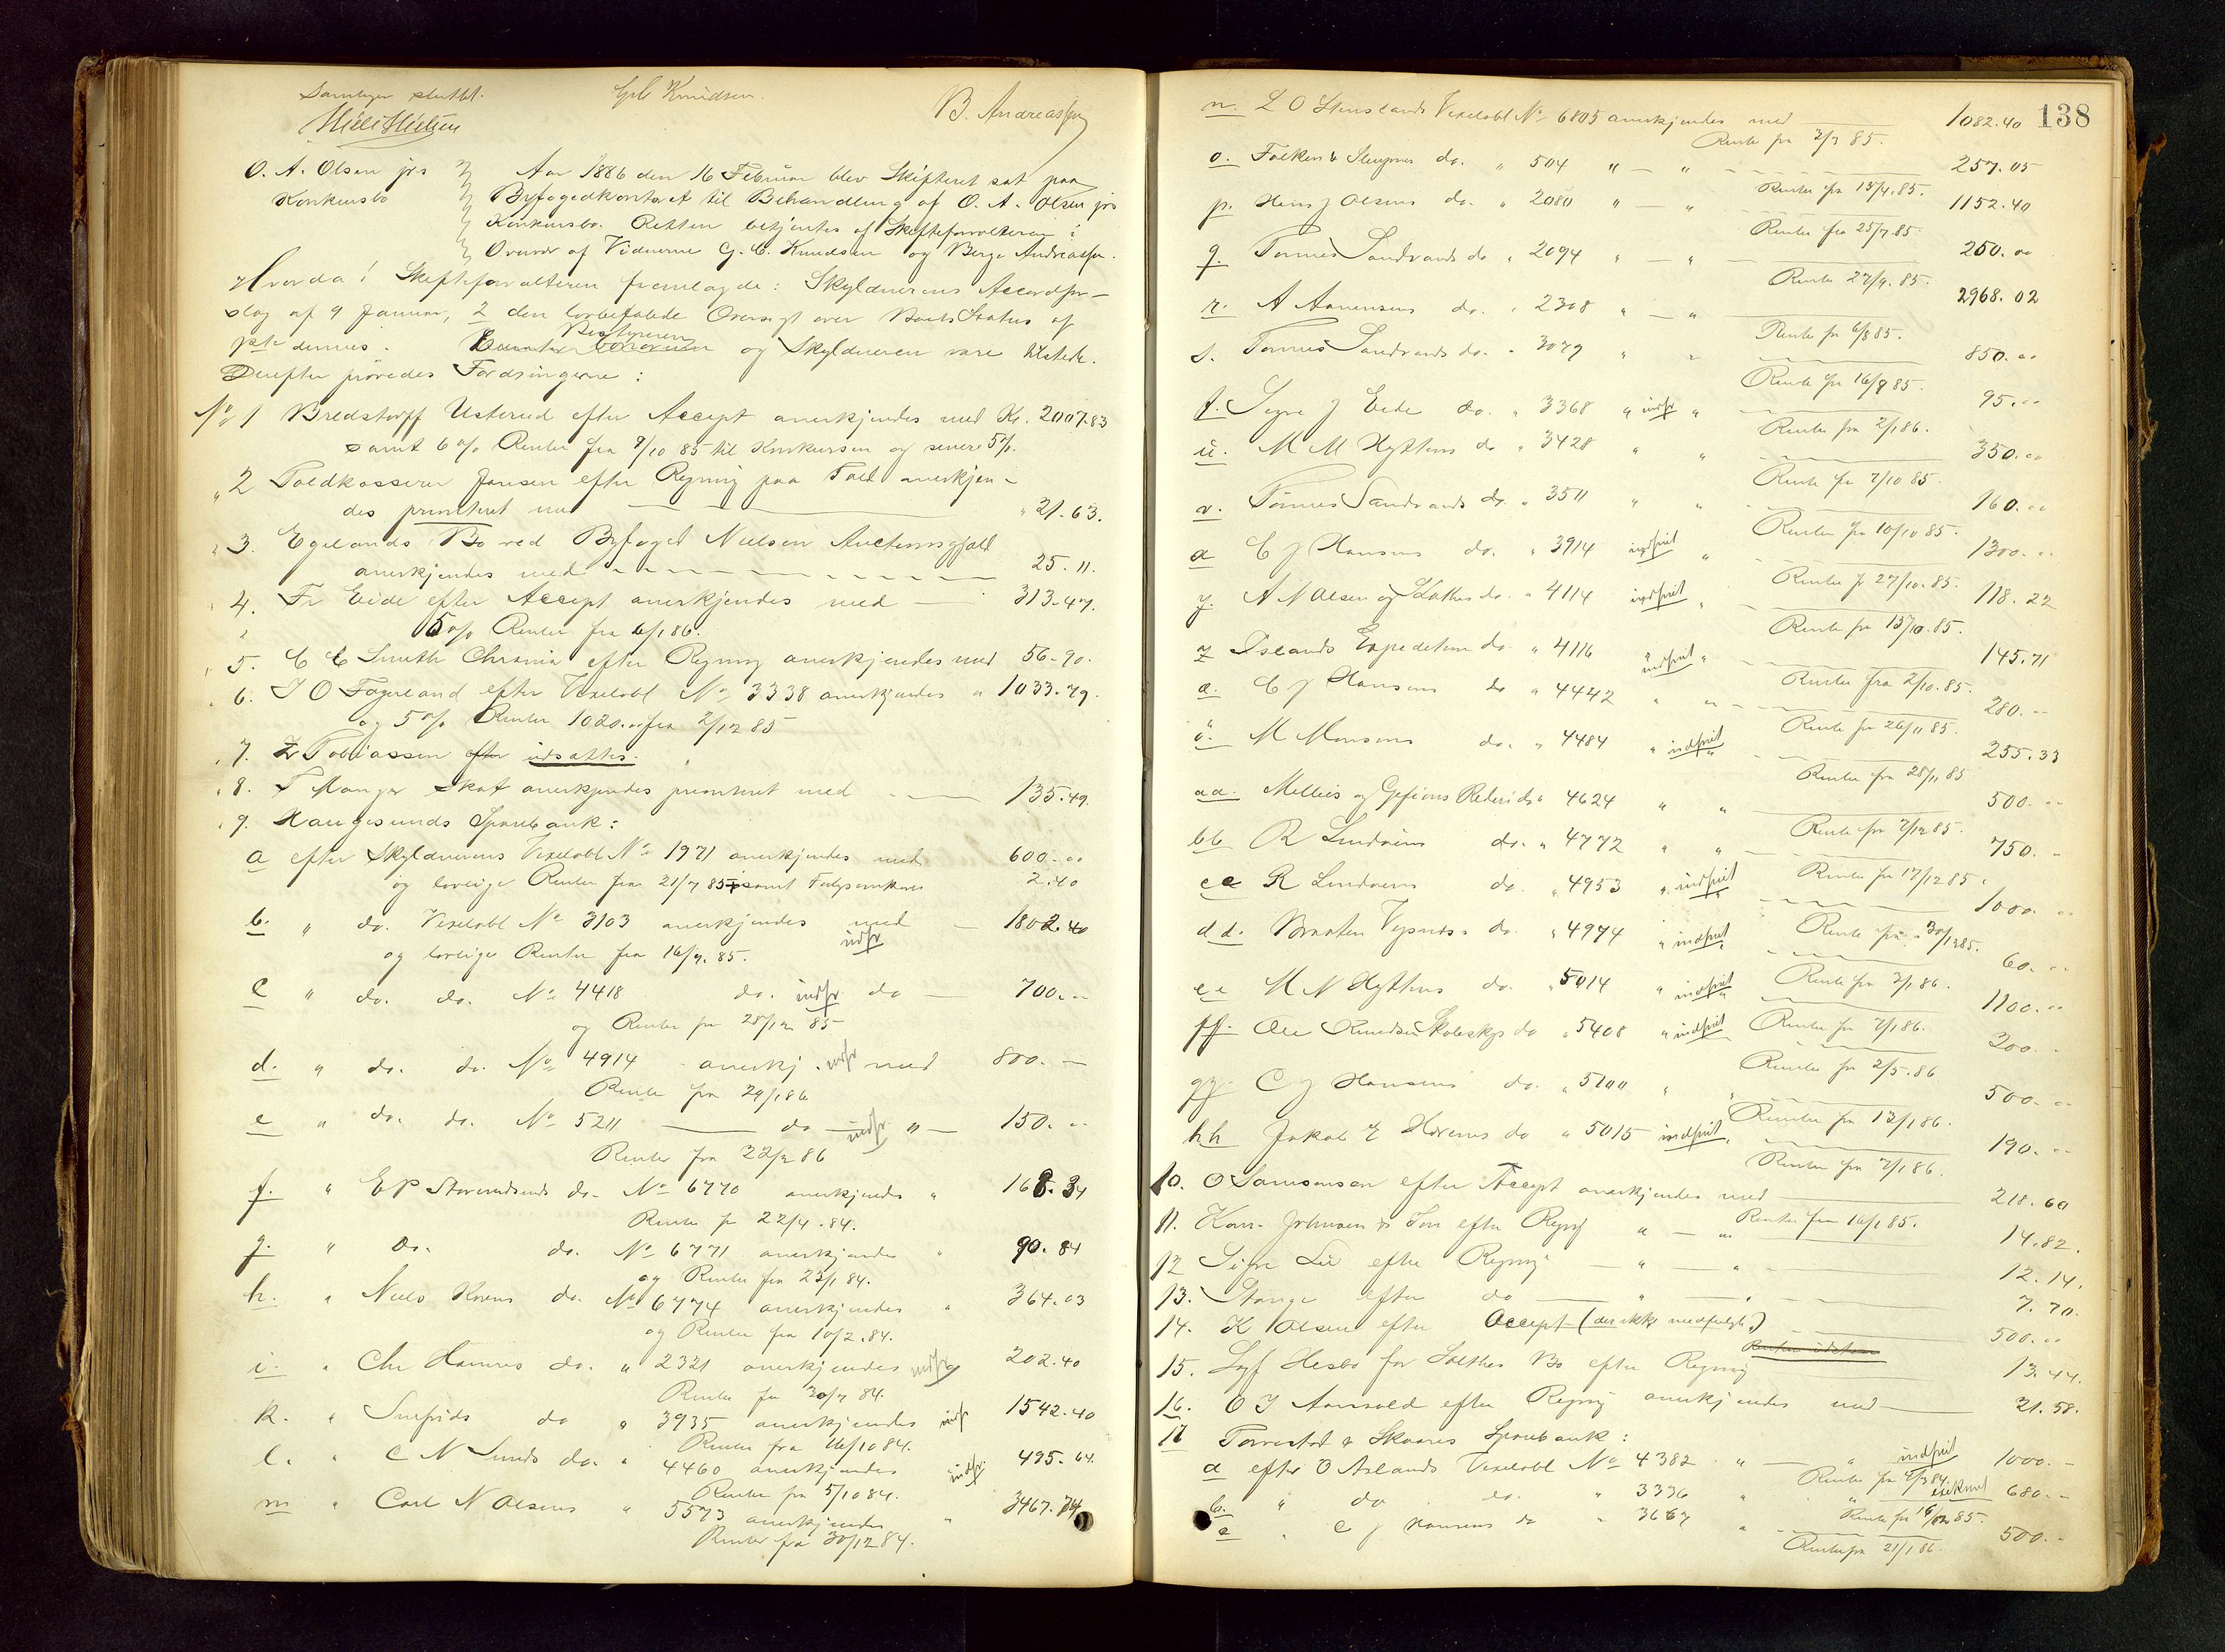 Samlingen sluttet.
Niels Nielsen
G. C. Knudsen.
B. Andreassen
O. A. Olsen jrs
Konkursbo
Aar 1886 den 16 Februar blev Skifteret sat paa
Byfogedkontoret til Behandling af O. A. Olsen jrs
Konkursbo. Retten betjentes af Skifteforvalteren i
Overvær af Vidnerne G. C. Knudsen og Berge Andreassen.
Hvorda! Skifteforvalteren fremlagde: Skyldnerens Accordfor-
slag af 9 Januar, 2 den lovbefalede Oversigt over Boets Status af
Bestyreren
pte dennes. og Skyldneren vare tilstede.
Derefter prøvedes Fordringerne:
No 1 Bredstorff Usterud efter Accept anerkjendes med Kr. 2007.83
samt 6 o/o Renter fra 8/10 85 til Konkursen og senere 5%.
" 2 Toldkasserer Jansen efter Regning paa Told anerkjen-
des prioriteret med " 21.63.
" 3. Egelands Bo ved Byfoged Nielsen Auctionsgjæld
anerkjendes med 25.11.
" 4. Fr Eide efter Accept anerkjendes med 313.47.
5 o/o Renter fra 6/1 86.
" 5. C C Smith Chrania efter Regning anerkjendes med 56.90.
" 6. J O Fageland efter Vexelobl No 3338 anerkjendes " 1033.79.
og 5 o/o Renter 1020.00 fra 2/12 85
" 7. Z Tobiassen efter udsattes.
" 8. T Manger Skat anerkjendes prioriteret med 135.49.
" 9. Haugesunds Sparebank:
a efter Skyldnerens Vexelobl No 1971 anerkjendes med 600.00
og lovlige Renter fra 21/7 85 samt 2.40
b. " do. Vexelobl No 3103 anerkjendes med 1802.40
indfr
og lovlige Renter fra 16/9. 85.
c " do. do. No 4418 do. indfr do 700.00
og Renter fra 28/12 85
d. " do. do. No 4914 anerkj. indfr med 800.—
Renter fra 29/1 86
e " do. do. No 5211 do indfr " 150. "
Renter fra 22/2 86
f. " E P Storesundsunds do. No 6770 anerkjendes " 168.34
Renter fr 22/4. 84.
g. " Do. do. No 6771 anerkjendes " 90.84
og Renter fra 23/1 84.
h. " Niels Korens do. No 6774 anerkjendes " 364.03
og Renter fra 10/2. 84.
i. " Chr Hannes do. " 2321 anerkjendes indfr 202.40
Renter fra 30/7 84.
k. " Snefrids do " 3935 anerkjendes indfr 1542.40
Renter fra 16/10 84.
l. " C N Lunds do. " 4460 anerkjendes indfr 495.64.
Renter fra 5/10 84.
m " Carl N Olsens " 5573 anerkjendes " 3467.74
Renter fra 30/12 84.
138
n. L O Stenslands Vexelobl No 6805 anerkjendes med 1082.40
Rente fra 3/7 85.
o. Falken & do. " 504 " — " 257.05
Renter fra 15/4. 85.
p. Hans J Olsens do. " 2080 " — " 1152.40
Renter fra 25/7. 85.
q. Tønnes Sandvands do " 2094 " — " 250.00
Rente 27/9. 85.
r. A Aanensens do. " 2308 " — " 2968.02
Rente fra 6/8 85.
s. Tønnes Sandvands do. " 3079 " " 850.00
Rente fra 16/9 85.
t. J Eide do. " 3368 " indfr " 95.00
Rente fra 2/1 86.
u. M M Hyttens do " 3428 " " 350.00
Rente fra 7/10 85.
v. Tønnes Sandvands do. " 3511 " " 160.00
Renter fra 10/10 85.
x C J Hansens do. " 3914 indfriet " 1300. "
Renter fr 27/10. 85.
y. A N Olsen og do. " 4114 indfriet " 118.22
Rente fra 13/10. 85.
z Islands Expedition do. " 4116 indfriet " 145.71
Renter fra 2/10. 85.
æ. C J Hansens do " 4442 " " 280. —
Rente fra 26/11 85.
ö. M Monsens do. " 4484 " indfriet 255.33
Rente fra 28/11 85
aa. Mellies og Gefions Rederi do " 4624 " " 500. "
Rente fra 7/12 85.
bb R Lindøens do. " 4772 " " 750. -
Rente fra 17/12 85.
cc R Lindøens do. " 4953 " indfriet 1000. "
Rente fra 30/12 85.
dd. Vespnæs do. " 4974 " indfriet 60. "
Rente fra 3/1 86.
ee M N Hyttens do. " 5014 " indfriet 1100. "
Renter fra 7/1 86.
ff Ole Knudsen do " 5408 " indfriet 300. -
Renter fra 2/5. 86
gg C J Hansens do. " 5100 " " 500. "
Renter fra 13/1 86.
hh Jakob E do " 5015 indfriet 190. "
Renter fra 7/1 86.
10. O Samsonsen efter Accept anerkjendes med 218.60
Renter fra 16/1 85.
11. Kon. Johnsen & Søn efter Regng " — " 14.82.
12 Sigv Lie efter Regning — " — " 12.14.
13. Stange efter do " — " 7.70.
14. K Olsen efter Accept (der ikke medfulgte) 500.00
15. Sagf Hesbø for Solthes Bo efter Regning 13.44.
16. O J Aanvold efter Regning anerkjendes med 21.58.
17 Torvestad & Skaares Sparebank:
a efter O Aslands Vexelobl No 4382 " — " indfriet 1000. —
Rente fra 4/3 84.
b. " do do. " 3336 " " 680. -
Rente fra 16/12 85.
c " C J Hansens do " 3667 " 500. -
Renter fra 21/1 86.